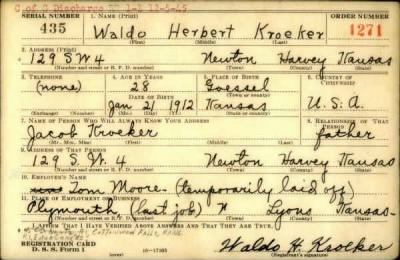 C of G Discharge 12-5-45
SERIAL NUMBER 1. NAME (Print) ORDER NUMBER
435 Waldo Herbert Kroeker 1271
(First) (Middle) (Last)
2. ADDRESS (Print)
129 S W 4 Newton Harvey Kansas
(Number and street or R. F. D. number) (Town) (County) (State)
3. TELEPHONE 4. AGE IN YEARS 5. PLACE OF BIRTH 6. COUNTRY OF CITIZENSHIP
(none) 28 Goessel
DATE OF BIRTH (Town or county)
Jan 21 1912 Kansas U. S. A.
(Exchange) (Number) (Mo.) (Day) (Yr.) (State or country)
7. NAME OF PERSON WHO WILL ALWAYS KNOW YOUR ADDRESS 8. RELATIONSHIP OF THAT PERSON
Jacob Kroeker father
(Mr., Mrs., Miss) (First) (Middle) (Last)
9. ADDRESS OF THAT PERSON
129 S. W. 4 Newton Harvey Kansas
(Number and street or R. F. D. number) (Town) (County) (State)
10. EMPLOYER'S NAME
Tom Moore - (temporarily laid off)
11. PLACE OF EMPLOYMENT OR BUSINESS
Plymouth (last job) N Lyons Kansas-
(Number and street or R. F. D. number) (Town) (County) (State)
I AFFIRM THAT I HAVE VERIFIED ABOVE ANSWERS AND THAT THEY ARE TRUE.
REGISTRATION CARD
D. S. S. Form 1 16-17105 Waldo H. Kroeker